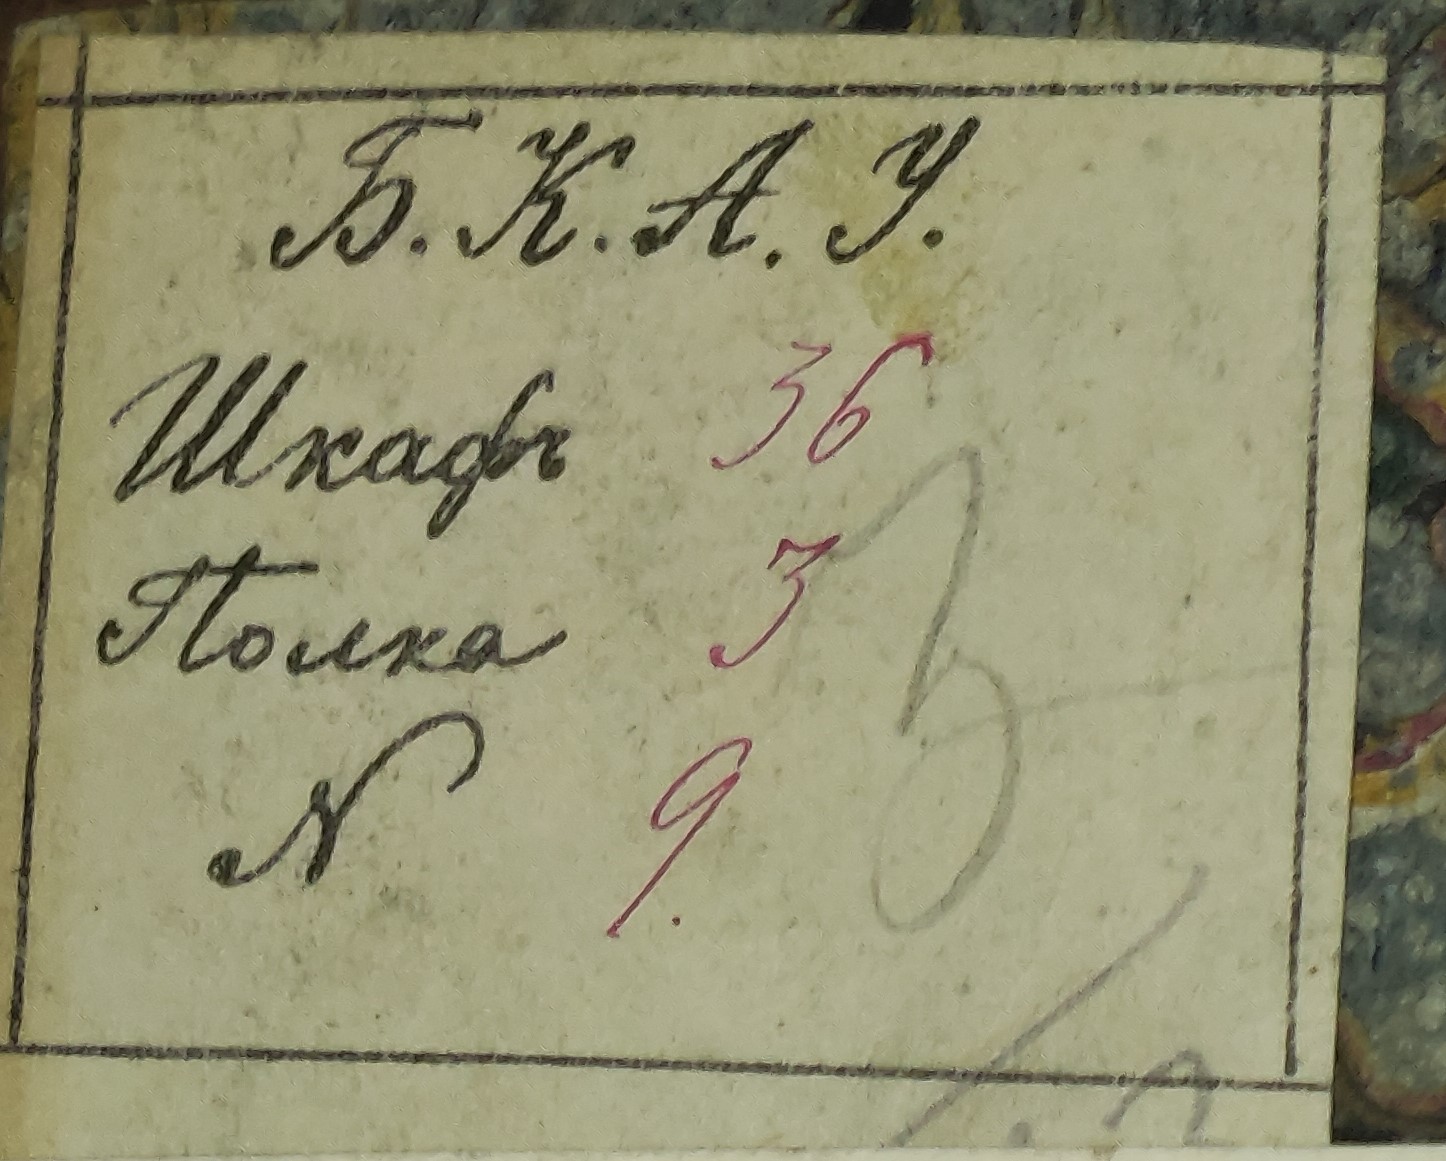 Б. К. А. У.
Шкафъ 36
Полка 3
N 9.